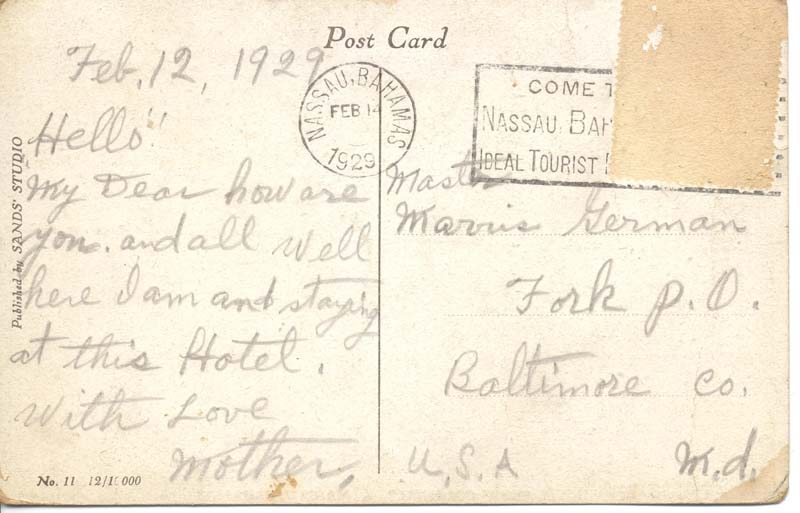 Post Card
Feb. 12, 1929
Hello"
My Dear how are
you. and all well
here I am and staying
at this Hotel.
With Love
Mother,
NASSAU, BAHAMAS
FEB 14
1929
COME
NASSAU, BAH
IDEAL TOURIST
Master
German
Fork P.O.
Baltimore Co.
U.S.A M.d.
Published by SANDS' STUDIO
No. 11 12/1 000